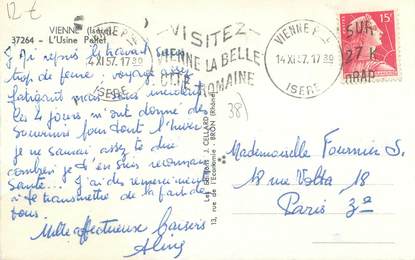 12 €
VIENNE (Isère)
37264 - L'Usine Pallet
VISITEZ
VIENNE LA BELLE
CITE ROMAINE
14 XI 57. 17 30
ISERE
VIENNE P.
14 XI 57. 17 30
ISERE
15F
SUR
27 K
38
J'ai repris le travail sans
trop de ; voyage assez
fatigant mais sans incident
les 4 jours m'ont donné des
souvenirs pour tout l'hiver
je ne saurai assez te dire
combien je t'en suis
Santé... J'ai des remerciements
à te transmettre de la part de
tous.
Mille affectueux baisers
Aline
Les Éditions J. CELLARD
13, rue de l'Economie - BRON (Rhône)
Mademoiselle Fournier S.
18 rue Volta 18
Paris 3e